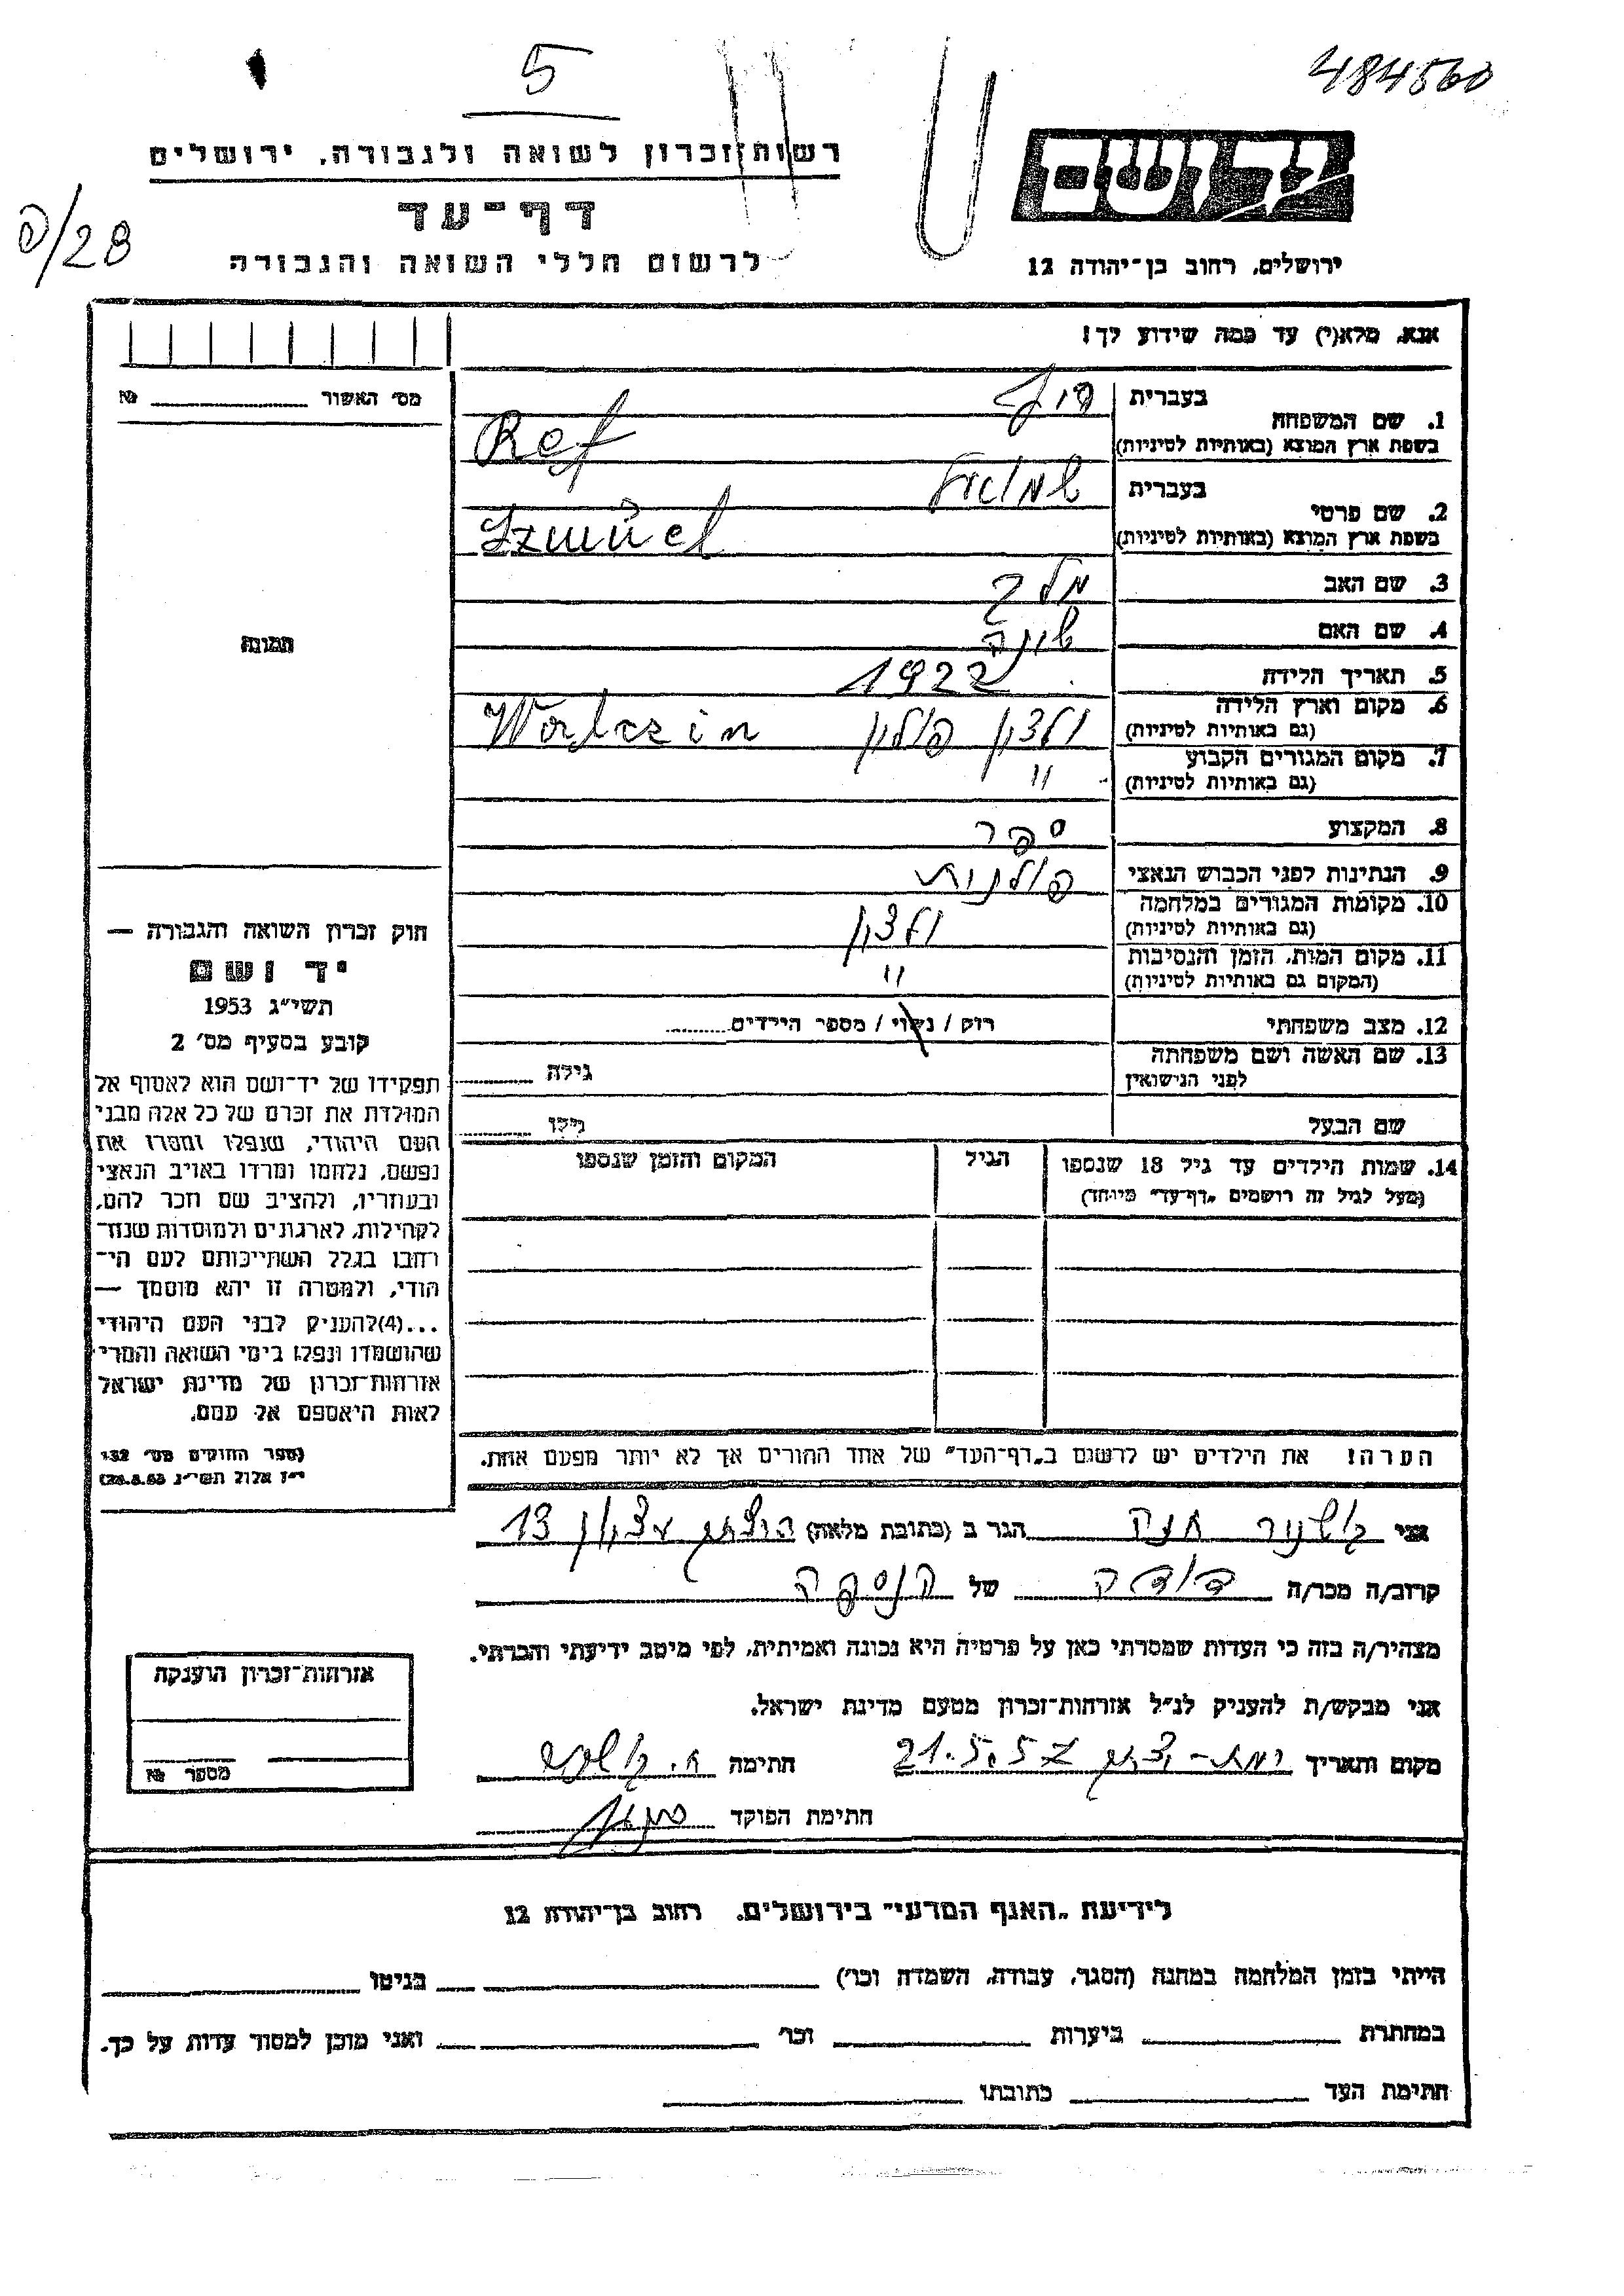 5
484560
רשות זכרון לשואה ולגבורה, ירושלים
יד ושם
דף-עד
פ/28
לרשום חללי השואה והגבורה
ירושלים, רחוב בן-יהודה 12
אנא, מלא(י) עד כמה שידוע לך!
מס' האשור № 
1. שם המשפחה
בעברית
בשפת ארץ המוצא (באותיות לטיניות)
Ref
2. שם פרטי
בעברית שמואל
בשפת ארץ המוצא (באותיות לטיניות) Szmuel
3. שם האב מלך
4. שם האם שונה
5. תאריך הלידה 1922
6. מקום וארץ הלידה ולצין פולין Worlczin
(גם באותיות לטיניות)
7. מקום המגורים הקבוע "
(גם באותיות לטיניות)
8. המקצוע ספר
9. הנתינות לפני הכבוש הנאצי פולנית
10. מקומות המגורים במלחמה ולצין
(גם באותיות לטיניות)
11. מקום המות, הזמן והנסיבות "
(המקום גם באותיות לטיניות)
12. מצב משפחתי רוק / נשוי / מספר הילדים
13. שם האשה ושם משפחתה
לפני הנישואין גילה
שם הבעל גילו
14. שמות הילדים עד גיל 18 שנספו הגיל המקום והזמן שנספו
(מעל לגיל זה רושמים "דף-עד" מיוחד)
הערה! את הילדים יש לרשום ב"דף-העד" של אחד ההורים אך לא יותר מפעם אחת.
תמונה
חוק זכרון השואה והגבורה —
יד ושם
תשי"ג 1953
קובע בסעיף מס' 2
תפקידו של יד-ושם הוא לאסוף אל
המולדת את זכרם של כל אלה מבני
העם היהודי, שנפלו ומסרו את
נפשם, נלחמו ומרדו באויב הנאצי
ובעוזריו, ולהציב שם וזכר להם,
לקהילות, לארגונים ולמוסדות שנח-
רבו בגלל השתייכותם לעם הי-
הודי, ולמטרה זו יהא מוסמך —
...(4) להעניק לבני העם היהודי
שהושמדו ונפלו בימי השואה והמרי
אזרחות-זכרון של מדינת ישראל
לאות היאספם אל עמם.
(ספר החוקים מס' 132
י"ז אלול תשי"ג 28.8.53)
אני חנה הגר ב (כתובת מלאה) 13
קרוב/ה מכר/ה דודה של הנספה
מצהיר/ה בזה כי העדות שמסרתי כאן על פרטיה היא נכונה ואמיתית, לפי מיטב ידיעתי והכרתי.
אני מבקש/ת להעניק לנ"ל אזרחות-זכרון מטעם מדינת ישראל.
מקום ותאריך 21.5.57 חתימה
חתימת הפוקד
אזרחות-זכרון הוענקה
מספר №
לידיעת "האגף המדעי" בירושלים, רחוב בן-יהודה 12
הייתי בזמן המלחמה במחנה (הסגר, עבודה, השמדה וכו') בגיטו
במחתרת ביערות וכו' ואני מוכן למסור עדות על כך.
חתימת העד כתובתו